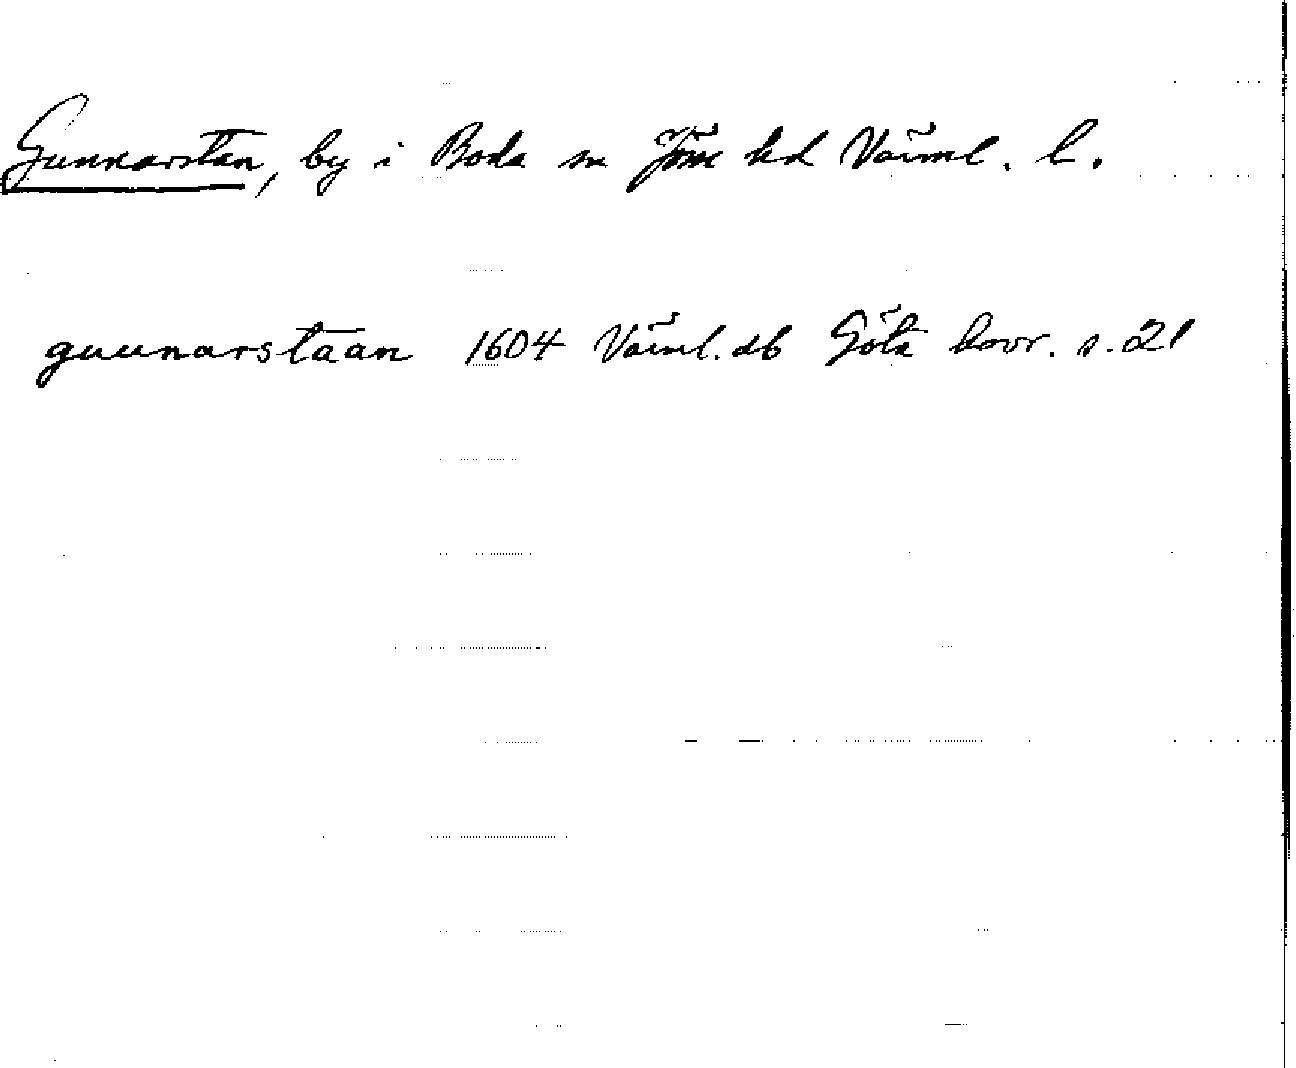 Gunnarstan, by i Boda sn Jöss hd Värml. l.
gunnarstaan 1604 Värml. db Göta hovr. s. 21